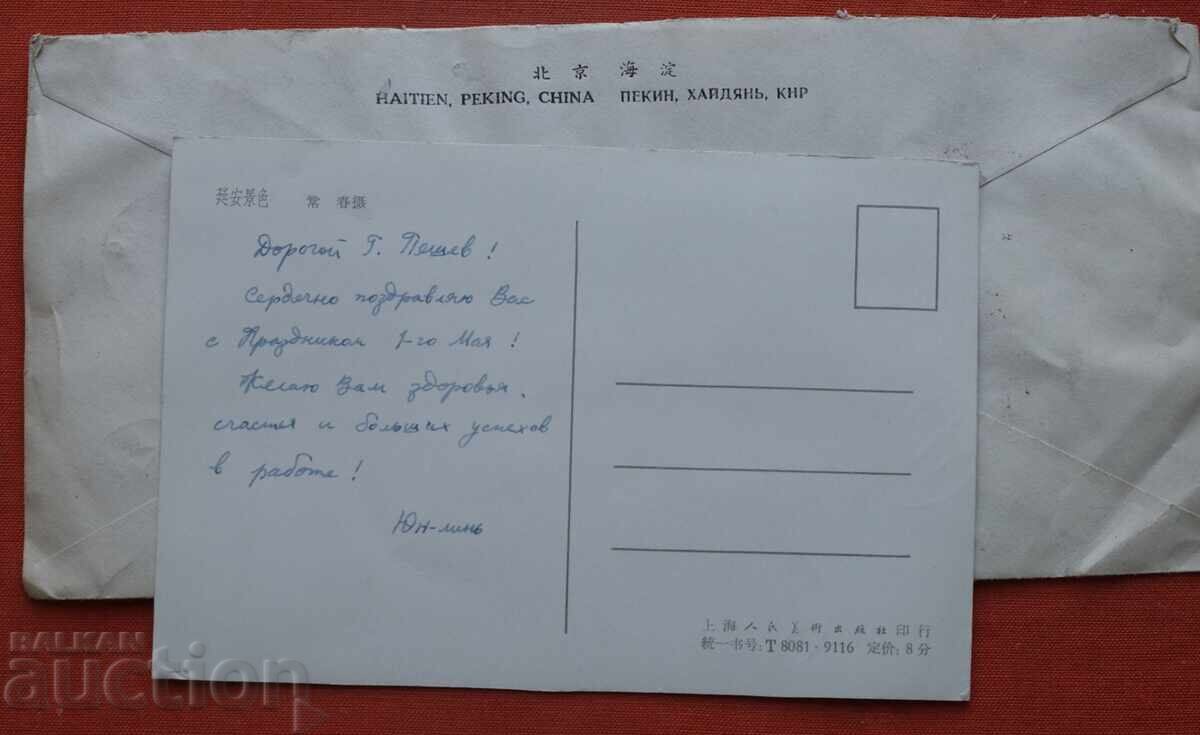 北京海淀
HAITIEN, PEKING, CHINA ПЕКИН, ХАЙДЯНЬ, КНР
延安景色 常春摄
Дорогой Г. Пешев!
Сердечно поздравляю Вас
с Праздником 1-го Мая!
Желаю Вам здоровья,
счастья и больших успехов
в работе!
Юн-линь
上海人民美术出版社印行
統一书号:T 8081·9116 定价:8分
BALKAN
auction